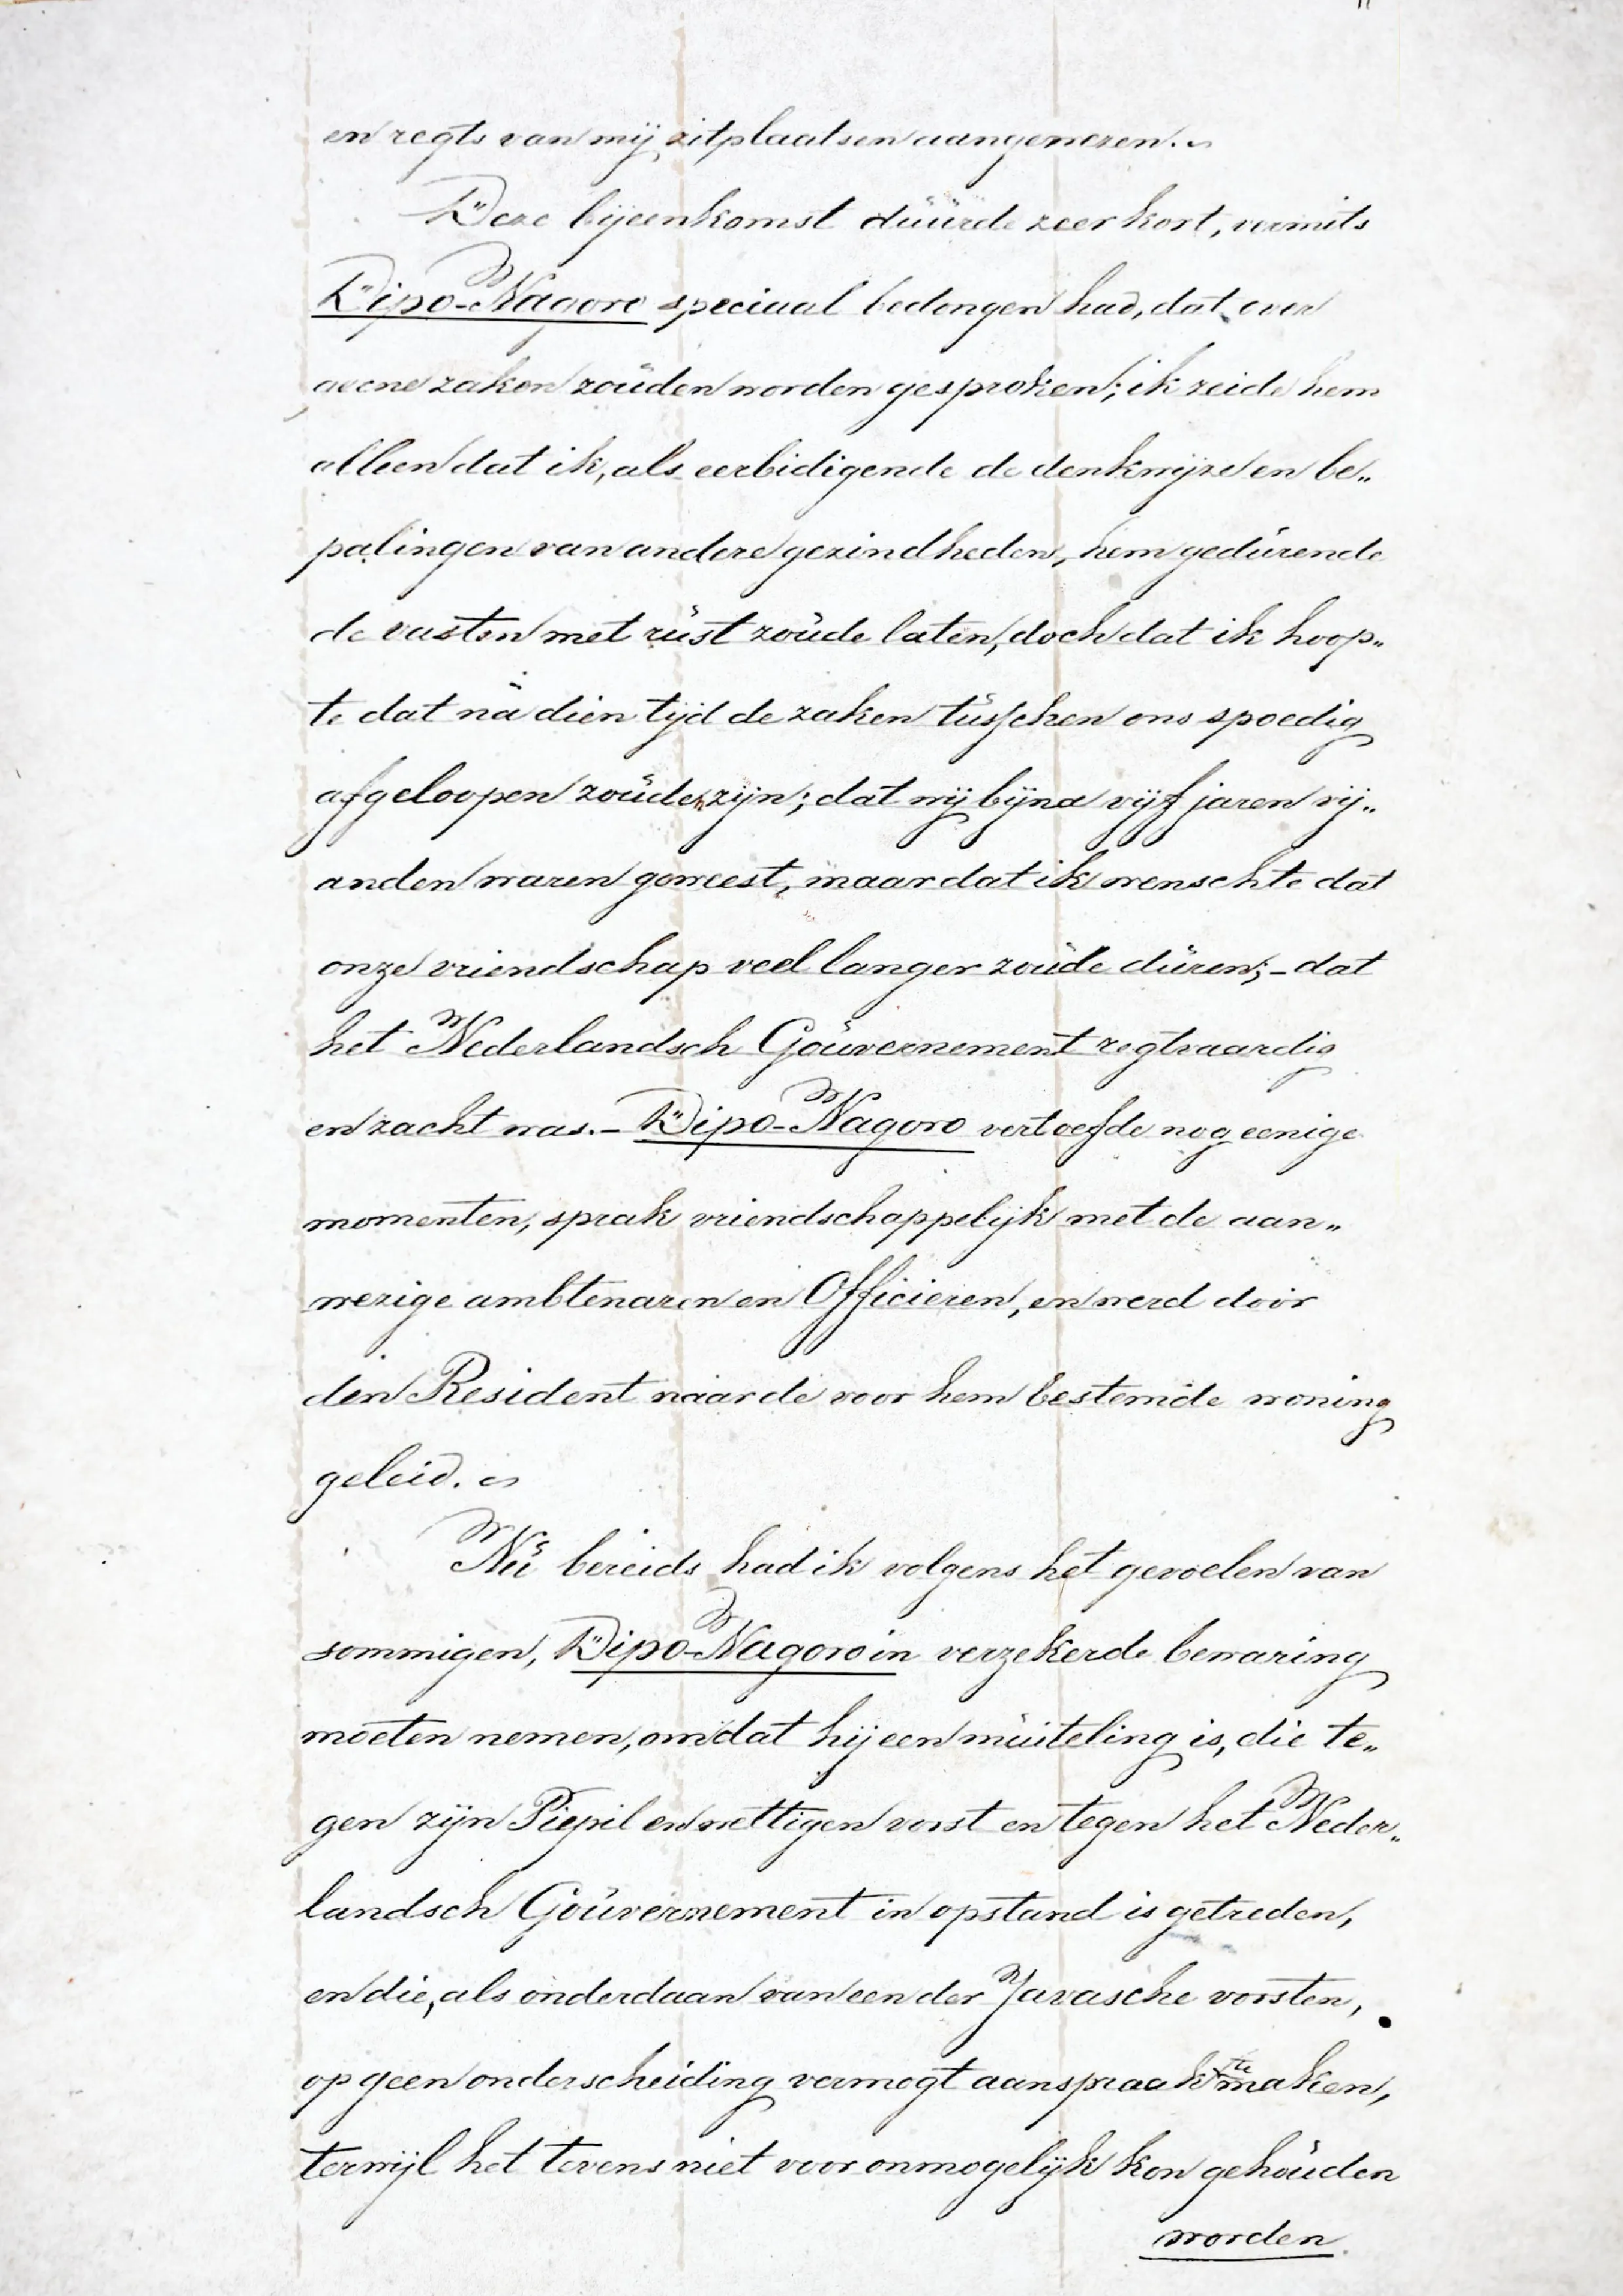 en regts van mij zitplaatsen aangewezen.
Deze bijeenkomst duurde zeer kort, vermits
Dipo-Nagoro speciaal bedongen had, dat over
geene zaken zouden worden gesproken; ik zeide hem
alleen dat ik, als eerbidigende de denkwijze en be„
palingen van andere gezindheden, hem gedurende
de vasten met rust zoude laten, doch dat ik hoop„
te dat na dien tijd de zaken tusschen ons spoedig
afgeloopen zouden zijn; dat wij bijna vijf jaren vij„
anden waren geweest, maar dat ik wenschte dat
onze vriendschap veel langer zoude duren; - dat
het Nederlandsch Gouvernement regtvaardig
en zacht was. - Dipo-Nagoro vertoefde nog eenige
momenten, sprak vriendschappelijk met de aan„
wezige ambtenaren en Officieren, en werd door
den Resident naar de voor hem bestemde woning
geleid.
Nu bereids had ik volgens het gevoelen van
sommigen, Dipo-Nagoro in verzekerde bewaring
moeten nemen, omdat hij een muiteling is, die te„
gen zijn Piepil en wettigen vorst en tegen het Neder„
landsch Gouvernement in opstand is getreden,
en die, als onderdaan van een der Javasche vorsten,
op geen onderscheiding vermogt aanspraak te maken,
terwijl het tevens niet voor onmogelijk kon gehouden
worden